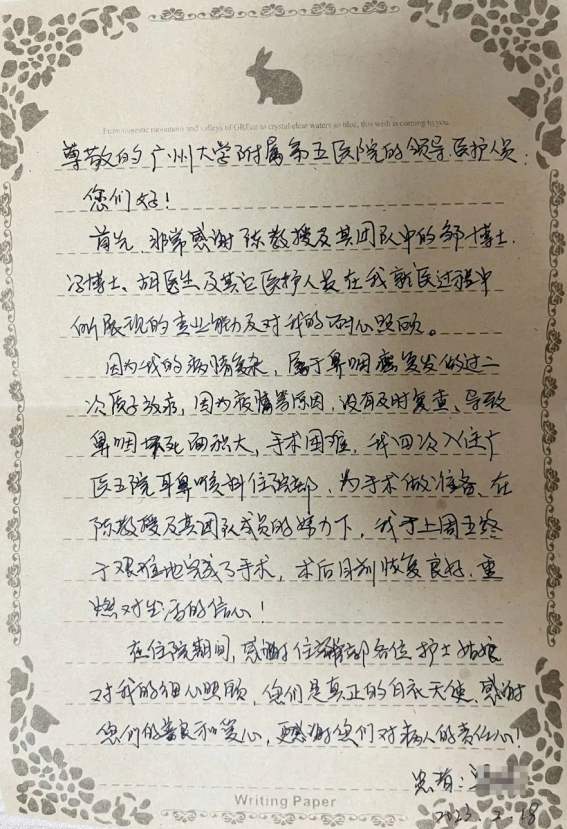 From majestic mountains and valleys of GREen to crystal clear waters so blue, this wish is coming to you.
尊敬的广州大学附属第五医院的领导、医护人员：
您们好！
首先，非常感谢陈教授及其团队中的邹博士、
冯博士、胡医生及其它医护人员在我就医过程中
所展现的专业能力及对我的耐心照顾。
因为我的病情复杂，属于鼻咽癌复发做过二
次质子放疗，因为疫情等原因，没有及时复查、导致
鼻咽坏死面积大，手术困难，我四次入住广
医五院耳鼻喉科住院部，为手术做准备、在
陈教授及其团队成员的努力下，我于上周五终
于艰难地完成了手术，术后目前恢复良好，重
燃对生活的信心！
在住院期间，感谢住院部各位护士姑娘
对我的细心照顾，您们是真正的白衣天使，感谢
您们的善良和爱心，更感谢您们对病人的责任心！
患者：
2023.2.18
Writing Paper